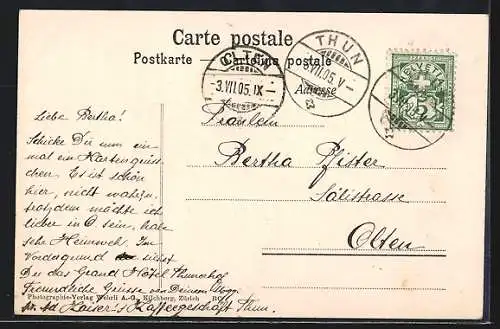 Carte postale
Postkarte — Cartolina postale
Adresse
OLTEN
-3.VII.05.IX-
THUN
3.VII.05.V-
5
Fräulein
Bertha Pfister
Sälistrasse
Olten
Liebe Bertha!
Schicke Du nun ein
mal ein Kartengrüss-
chen. Es ist schön
hier, nicht wahr,
trotzdem möchte ich
lieber in O. sein, habe
sehr Heimweh. Im
Vordergrund siehst
Du das Grand Hôtel Thunerhof
Freundliche Grüsse von Deinem
Photographie-Verlag Wehrli A.-G., Kilchberg, Zürich
Kaiser's Kaffeegeschäft Thun.